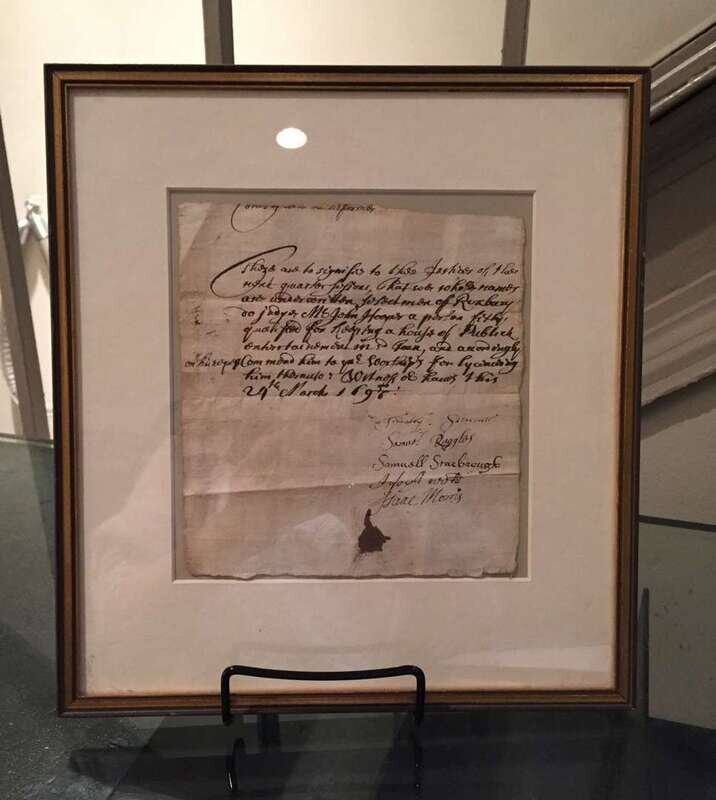 These are to signifie to thee Justices of thee
next quarter sessions, that wee whose names
are underwritten Selectmen of Roxbury
do judge Mr. John Hooper a person fitly
qualified for keeping a house of Publick
entertainement in Town, and accordingly
Commend him to yr worships for lycencing
him thereunto: Witness or hands this
24th March 169
Samll. Ruggles
Samuell Scarbrough
Isaac Morris